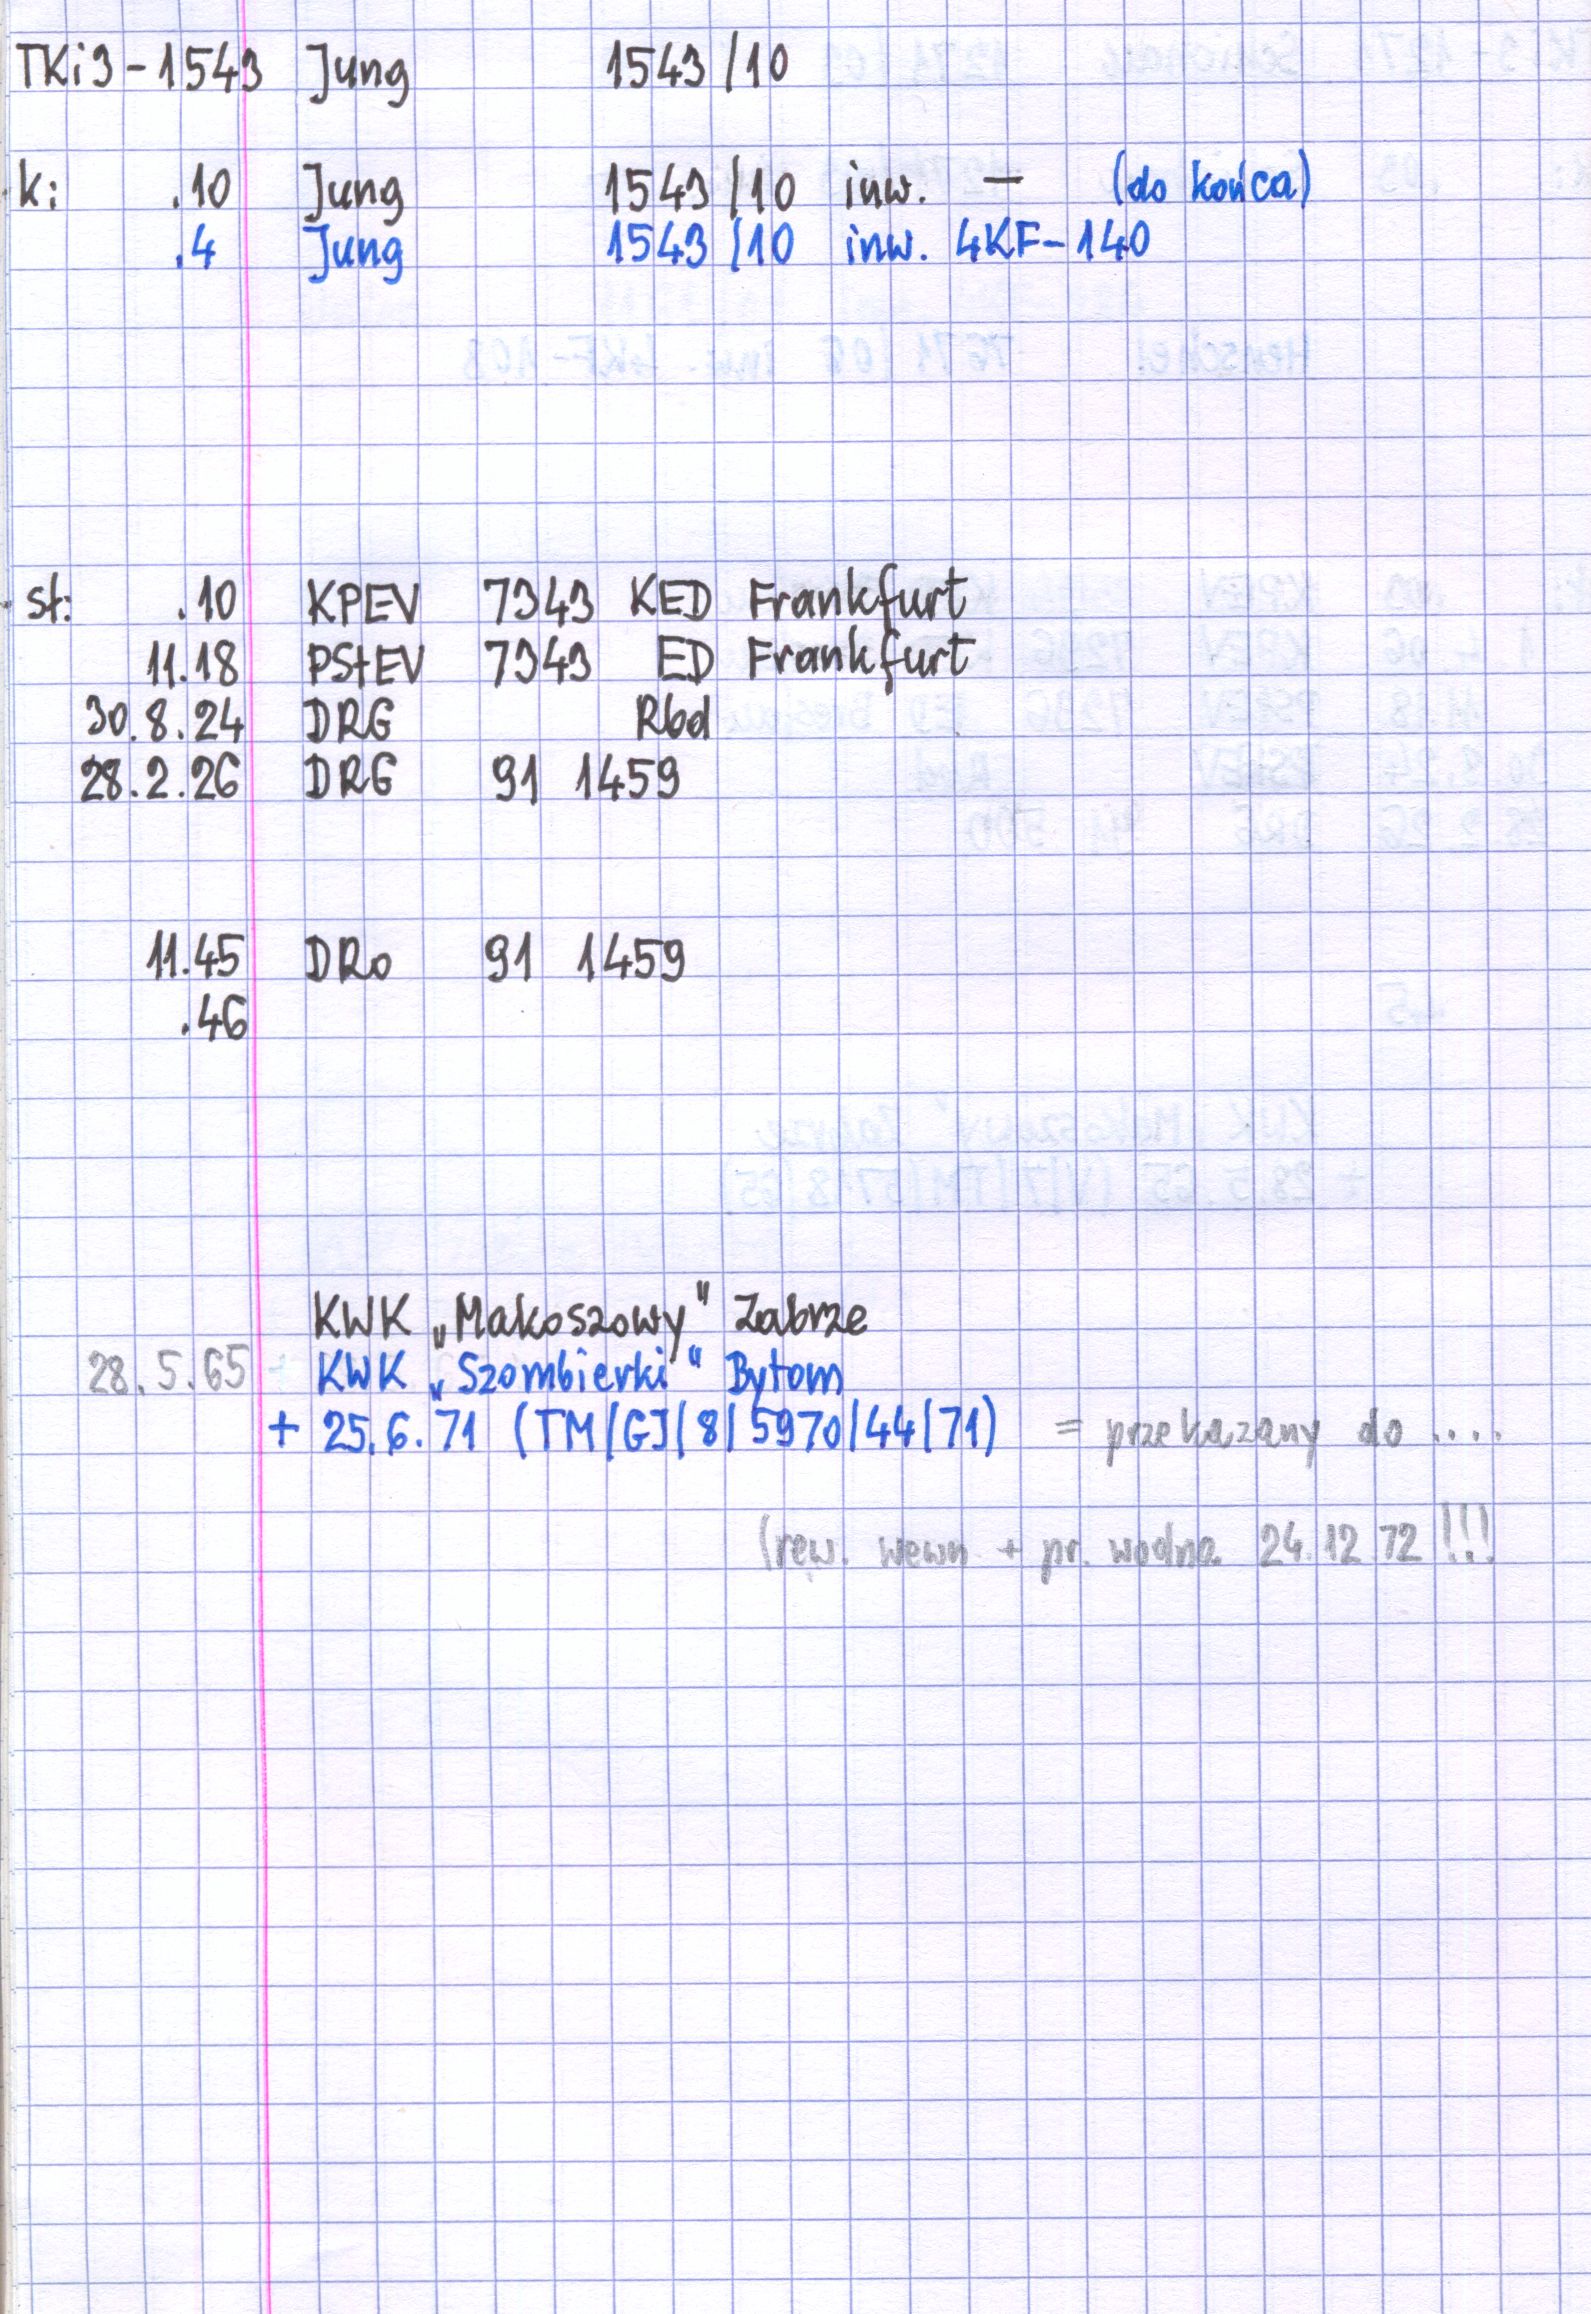 TKi3-1543 Jung 1543/10
k: .10 Jung 1543/10 inw. — (do końca)
.4 Jung 1543/10 inw. 4KF-140
st: .10 KPEV 7343 KED Frankfurt
11.18 PStEV 7343 ED Frankfurt
30.8.24 DRG Rbd
28.2.26 DRG 91 1459
11.45 DRo 91 1459
.46
KWK „Makoszowy" Zabrze
28.5.65 KWK „Szombierki" Bytom
+ 25.6.71 (TM/GJ/8/5970/44/71) = przekazany do ....
(rew. wewn + pr. wodna 24.12 72 !!!